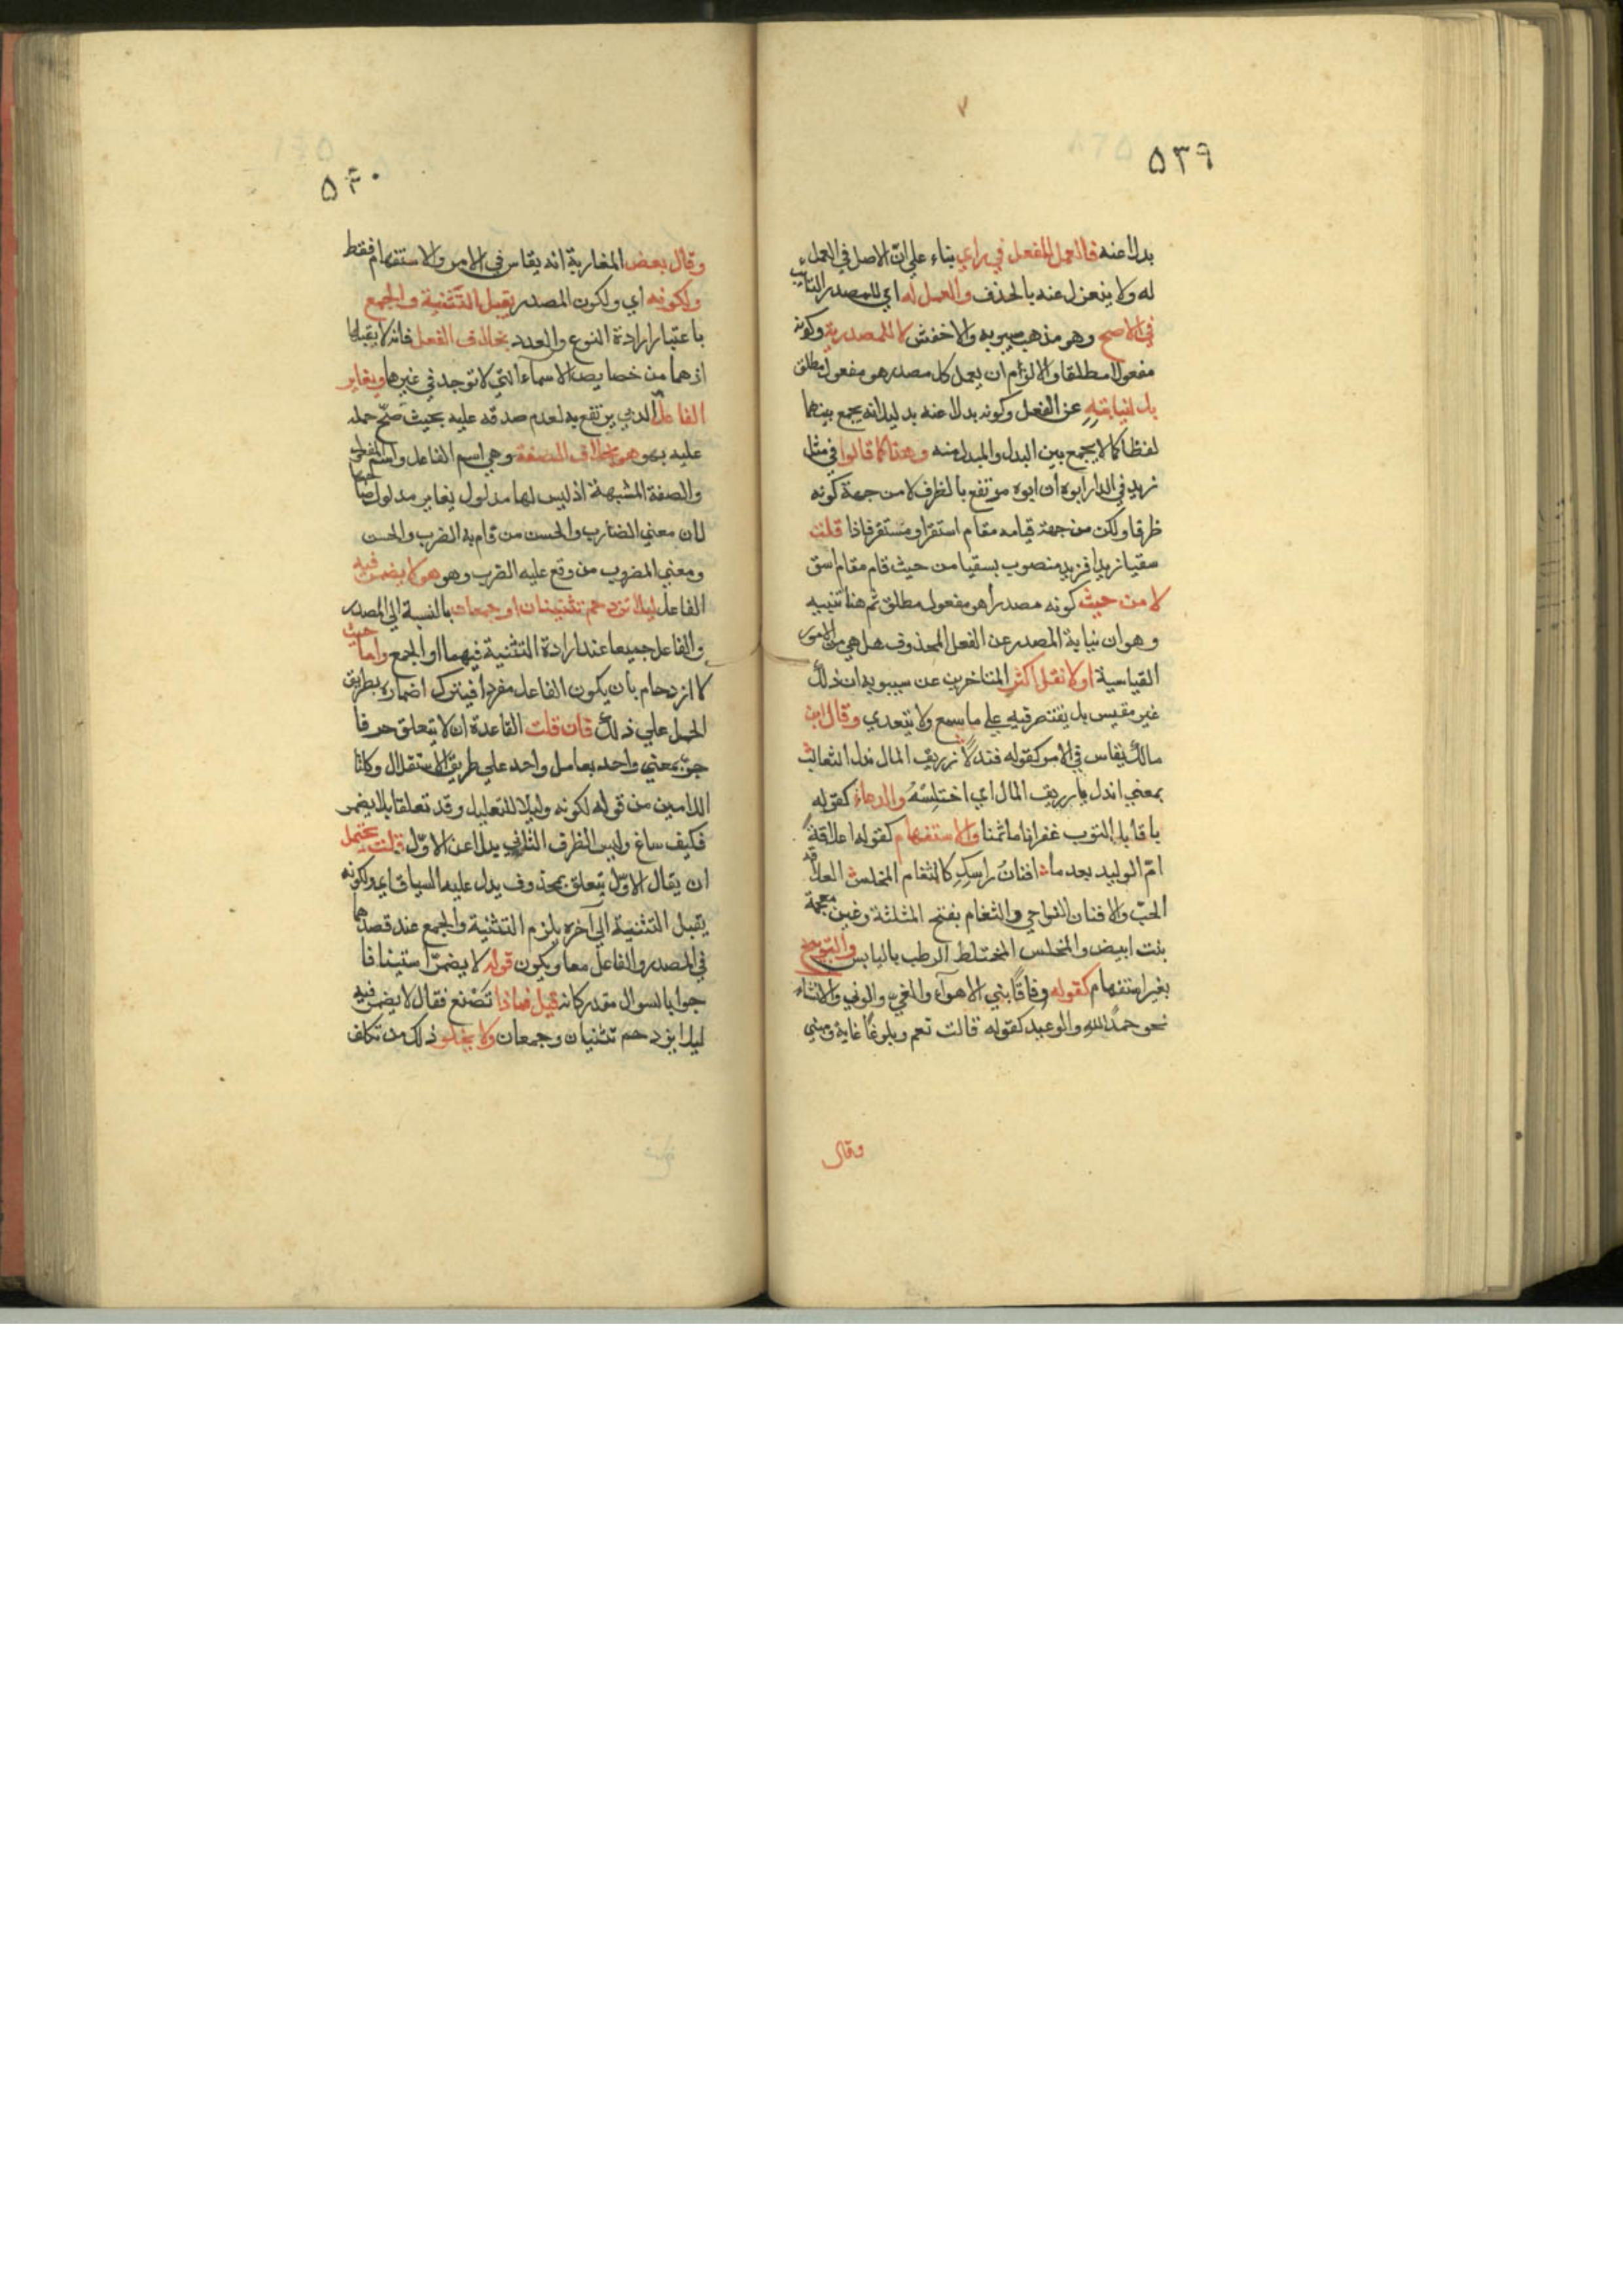 ٥٣٩
بدلا عنه فالعمل للفعل في راي بناء علي انّ الاصل في العمل
له ولا ينعزل عنه بالحذف والعمل له اي للمصدر النايب
في الاصح وهو مذهب سيبويه والاخفش لا للمصدرية وكونه
مفعولا مطلقا والا لزم ان يعمل كل مصدر هو مفعول مطلق
بل لنيابته عن الفعل وكونه بدلا عنه بدليل انه يجمع بينهما
لفظا كما لا يجمع بين البدل والمبدل منه وهذا كما قالوا في مثل
زيد في الدار ابوه ان ابوه مرتفع بالظرف لا من جهة كونه
ظرفا ولكن من جهة قيامه مقام استقر او مستقر فاذا قلت
سقيا زيدا فزيد منصوب بسقيا من حيث قام مقام اسق
لا من حيث كونه مصدرا هو مفعول مطلق ثم هنا تنبيه
وهو ان نيابة المصدر عن الفعل المحذوف هل هي من الامور
القياسية او لا نقل اكثر المتاخرين عن سيبويه ان ذلك
غير مقيس بل يقتصر فيه علي ما سمع ولا يتعدي وقال ابن
مالك يقاس في الامر كقوله فندلا زريق المال ندل الثعالب
بمعني اندل يا زريق المال اي اختلسه والدعاء كقوله
يا قابل التوب غفرانا ماثمنا والاستفهام كقوله اعلاقة
امّ الوليد بعد ما افنان راسك كالثغام المخلس العلاقة
الحبّ والافنان النواحي والثغام بفتح المثلثة وغين معجمة
بنت ابيض والمخلس المختلط الرطب باليابس والتوبيخ
بغير استفهام كقوله وفاقا بني الاهواء والغي والوني والانشاء
نحو حمدا لله والوعيد كقوله قالت نعم وبلوغا غاية ومني
وقال
٥٤٠
وقال بعض المغاربة انه يقاس في الامر والاستفهام فقط
ولكونه اي ولكون المصدر يقبل التثنية والجمع
باعتبار ارادة النوع والعدد بخلاف الفعل فانه لا يقبلها
اذ هما من خصايص الاسماء التي لا توجد في غيرها ويغاير
الفاعل الذي يرتفع به لعدم صدقه عليه بحيث صحّ حمله
عليه بهو هو بخلاف الصفة وهي اسم الفاعل واسم المفعول
والصفة المشبهة اذ ليس لها مدلول يغاير مدلول صاحبها
لان معني الضارب والحسن من قام به الضرب والحسن
ومعني المضروب من وقع عليه الضرب وهو هو لا يضمر فيه
الفاعل ليلا تزدحم تثنيتان او جمعان بالنسبة الي المصدر
والفاعل جميعا عند ارادة التثنية فيهما او الجمع واما حيث
لا ازدحام بان يكون الفاعل مفردا فيترك اضماره بطريق
الحمل علي ذلك فان قلت القاعدة ان لا يتعلق حرفا
جرّ بمعني واحد بعامل واحد علي طريق الاستقلال وكلتا
اللامين من قوله لكونه وليلا للتعليل وقد تعلقا بلا يضمر
فكيف ساغ وليس الظرف الثاني بدلا عن الاوّل قلت يحتمل
ان يقال الاوّل يتعلق بمحذوف يدل عليه السياق اي ولكونه
يقبل التثنية الي آخره يلزم التثنية والجمع عند قصدهما
في المصدر والفاعل معا ويكون قوله لا يضمر استينافا
جوابا لسوال مقدر كانه قيل فماذا تصنع فقال لا يضمر فيه
ليلا يزدحم تثنيان وجمعان ولا يخلو ذلك من تكلف